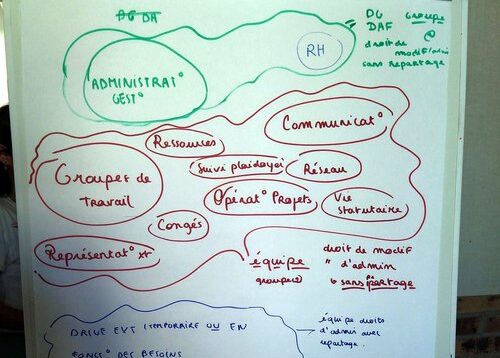 DG DA
DG Groupe
DAF @
droit de
modif/admin
sans repartage
RH
ADMINISTRAT°
GEST°
Communicat°
Ressources
Suivi plaidoyer
Réseau
Groupes de
travail
Opérat° Projets
Vie
statutaire
Congés
Représentat° xt
équipe
groupe@
droit de modif
" d'admin
↳ sans partage
DRIVE EXT TEMPORAIRE OU EN
FONCT° DES BESOINS
équipe droits
d'admin avec
repartage.